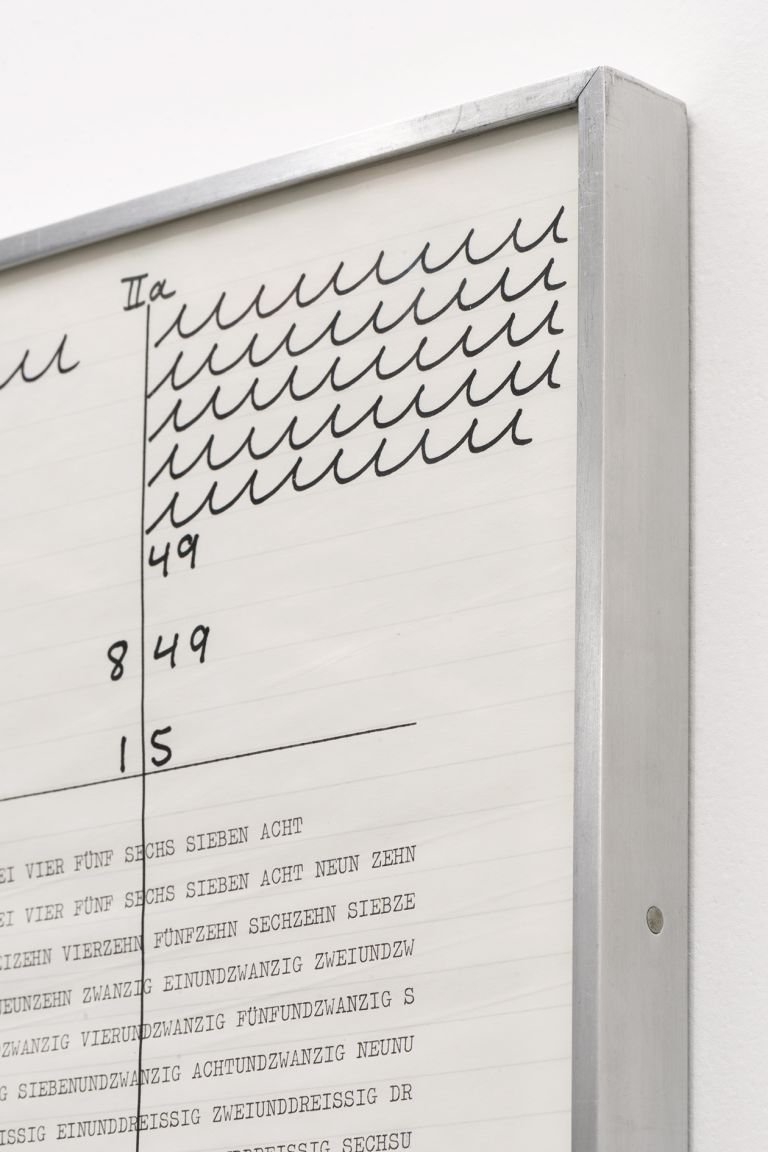 IIa
49
8 49
1 5
EI VIER FÜNF SECHS SIEBEN ACHT
EI VIER FÜNF SECHS SIEBEN ACHT NEUN ZEHN
EIZEHN VIERZEHN FÜNFZEHN SECHZEHN SIEBZE
NEUNZEHN ZWANZIG EINUNDZWANZIG ZWEIUNDZW
DZWANZIG VIERUNDZWANZIG FÜNFUNDZWANZIG S
G SIEBENUNDZWANZIG ACHTUNDZWANZIG NEUNU
EISSIG EINUNDDREISSIG ZWEIUNDDREISSIG DR
DDREISSIG SECHSU